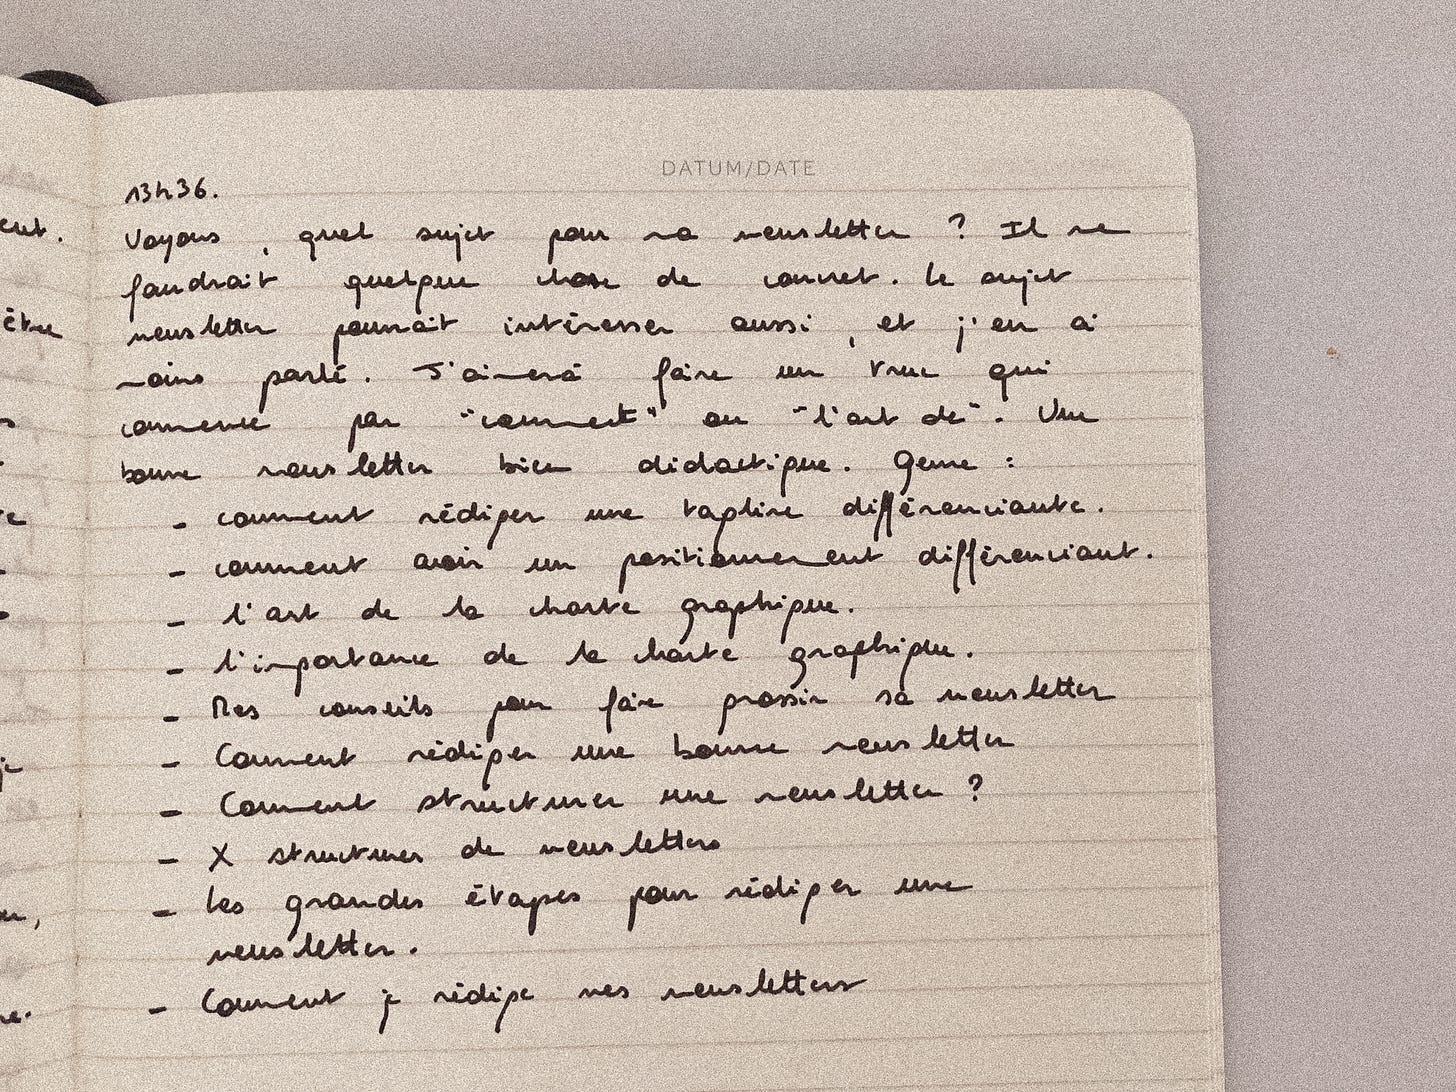 DATUM/DATE
13h36.
Voyons, quel sujet pour ma newsletter ? Il me
faudrait quelque chose de concret. Le sujet
newsletter pourrait intéresser aussi, et j'en ai
moins parlé. J'aimerai faire un truc qui
commence par "comment" ou "l'art de". Une
bonne newsletter bien didactique. Genre :
- comment rédiger une tagline différenciante.
- comment avoir un positionnement différenciant.
- l'art de la charte graphique.
- l'importance de la charte graphique.
- Mes conseils pour faire grossir sa newsletter
- Comment rédiger une bonne newsletter
- Comment structurer une newsletter ?
- X structures de newsletters
- Les grandes étapes pour rédiger une
newsletter.
- Comment je rédige mes newsletters
être